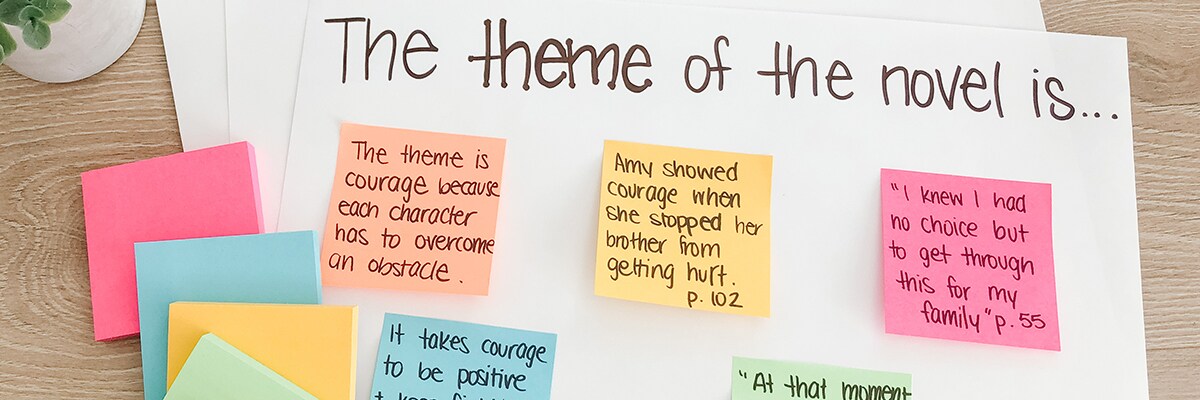 The theme of the novel is...
The theme is
courage because
each character
has to overcome
an obstacle.
Amy showed
courage when
she stopped her
brother from
getting hurt.
p. 102
"I knew I had
no choice but
to get through
this for my
family" p. 55
It takes courage
to be positive
"At that moment